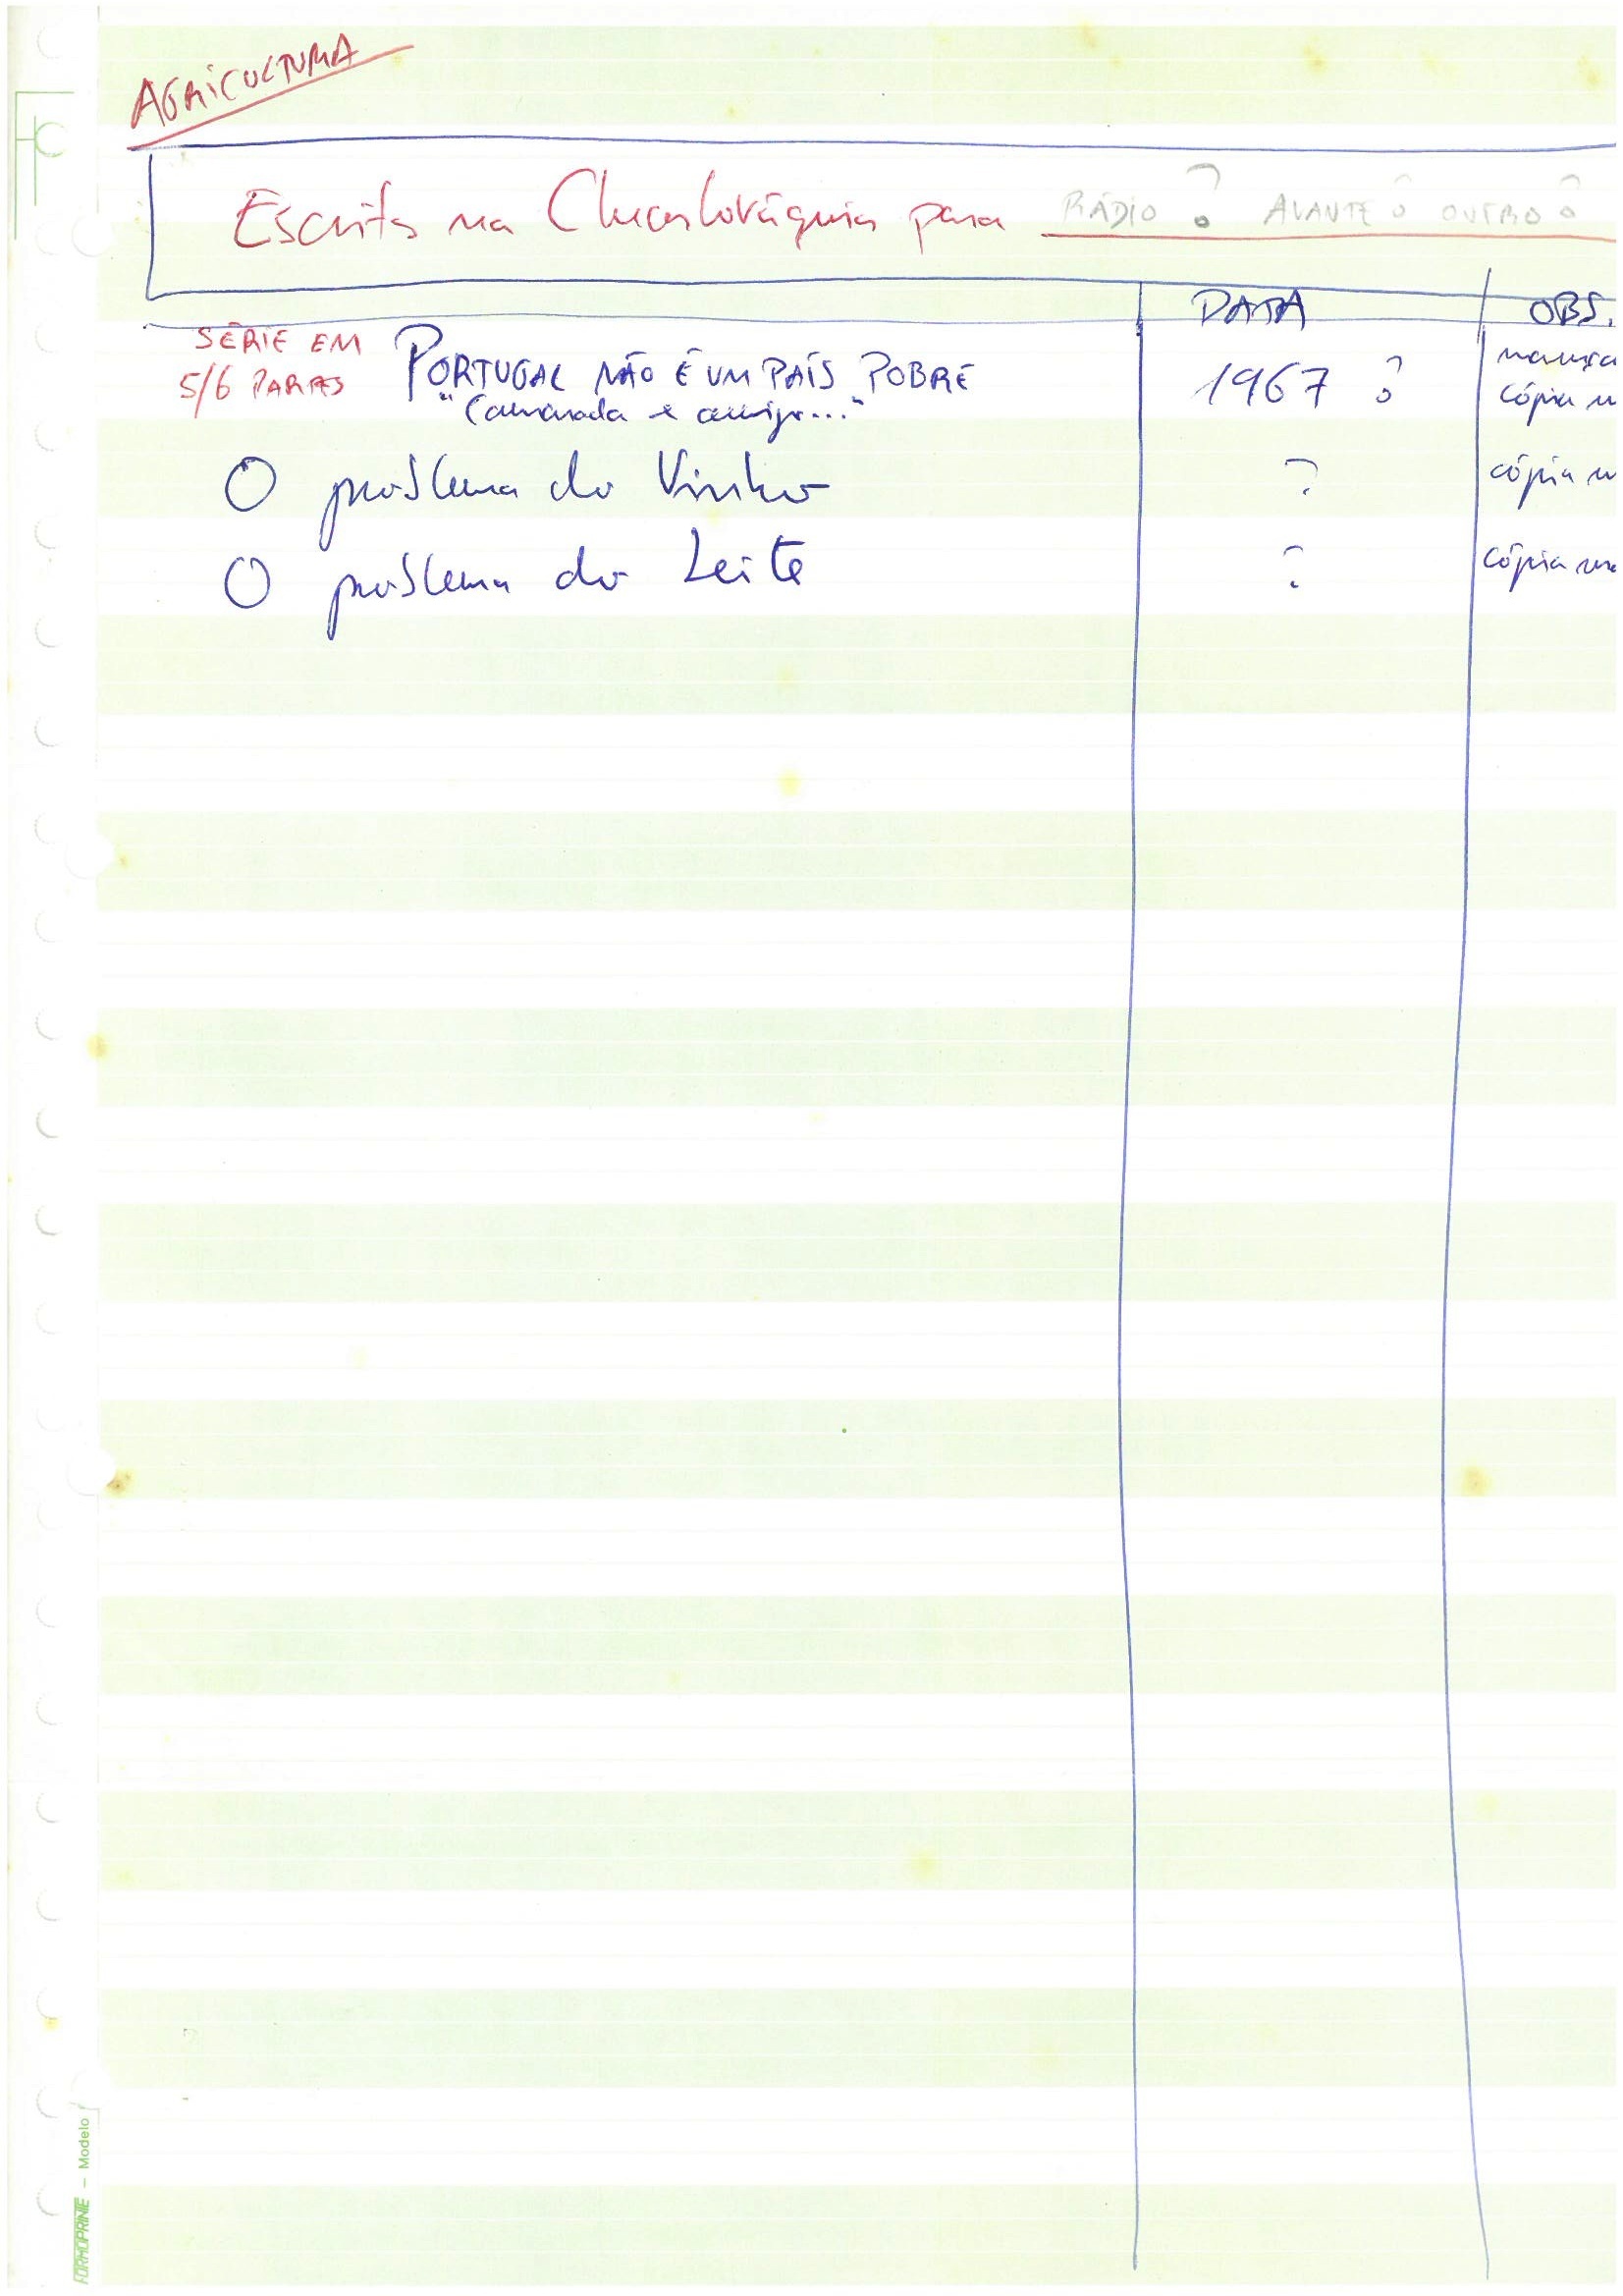 AGRICULTURA
Escritos na Checoslováquia para RÁDIO? AVANTE? OUTRO?
DATA OBS.
SÉRIE EM
5/6 PARTES
PORTUGAL NÃO É UM PAÍS POBRE 1967 ?
"Camarada e amigo..."
cópia
O problema do Vinho ? cópia
O problema do Leite ? cópia
FORMOPRINTE – Modelo